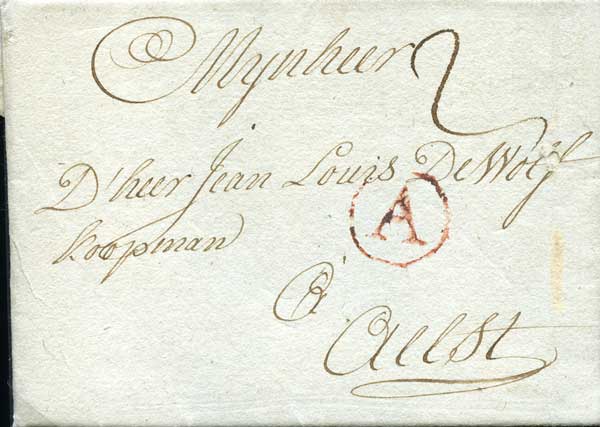 Mynheer 2
D'heer Jean Louis De Wolf
Koopman
A
à
Aelst